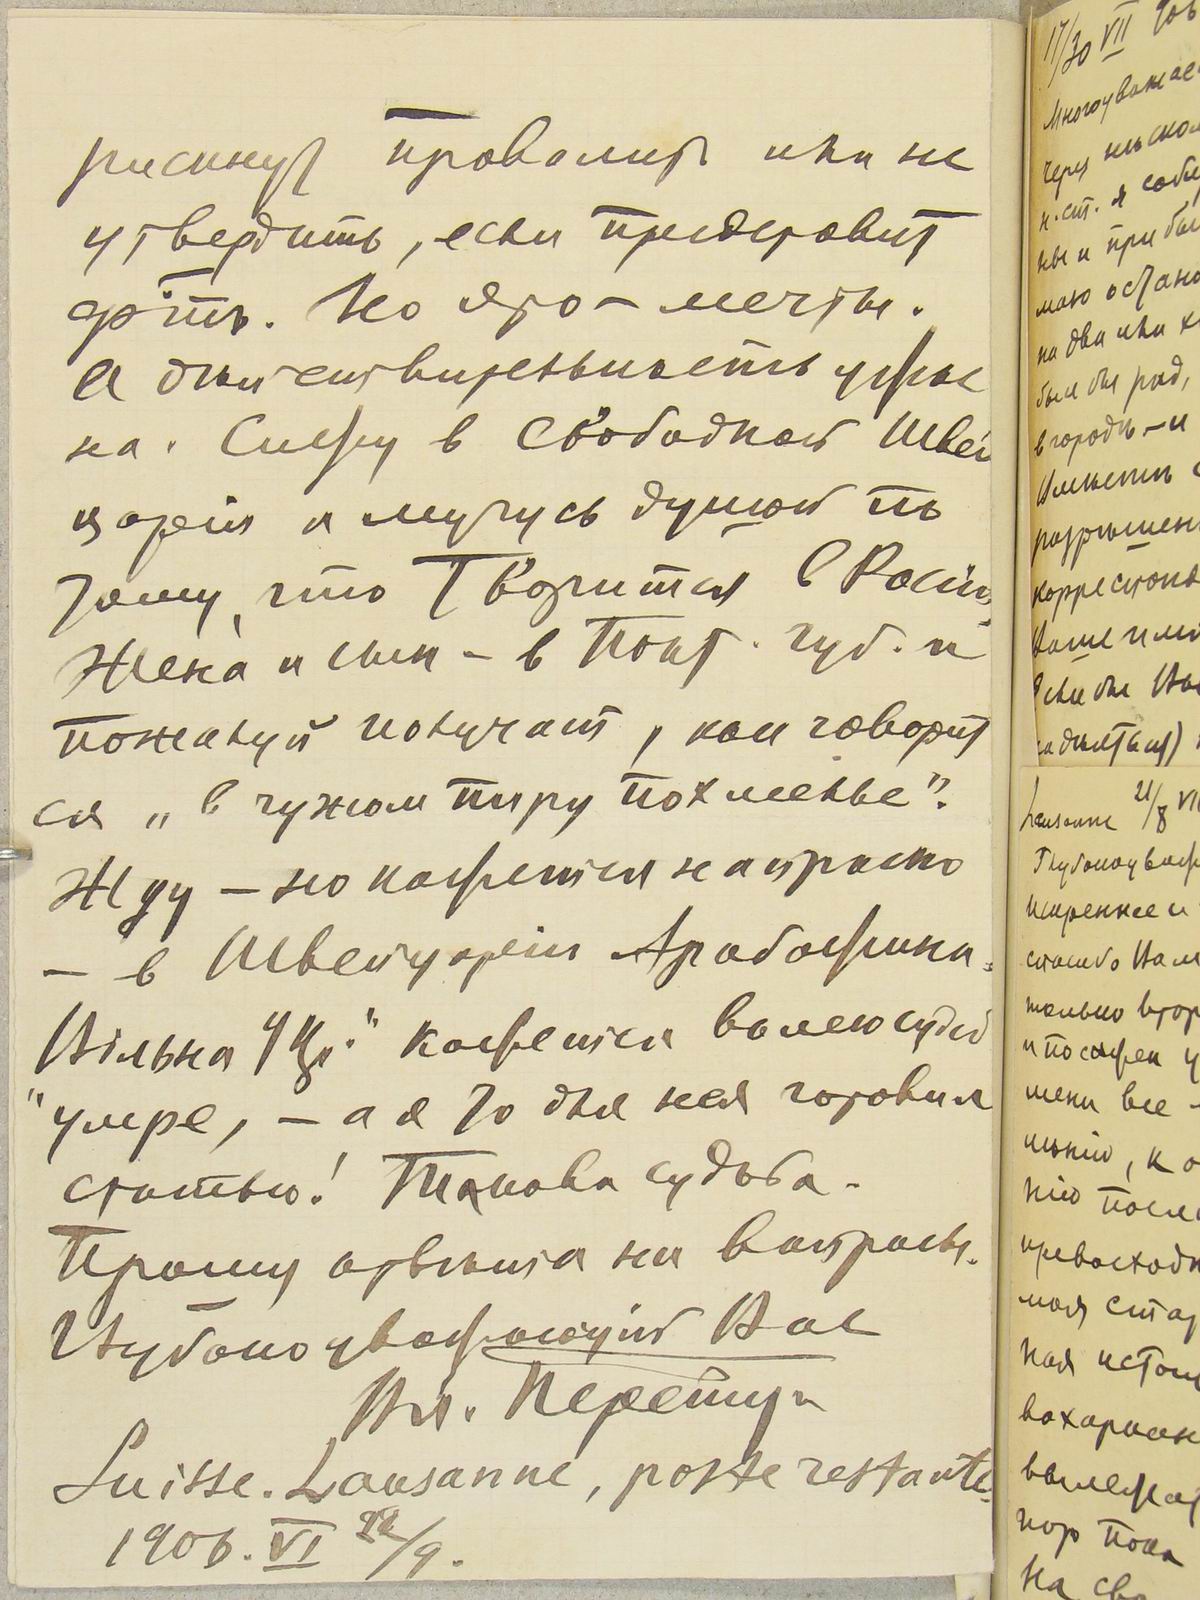 рискнут провалить или не
утвердить, если представит
фть. Но это — мечты.
А действительность ужас
на. Сижу в свободной Швей
царіи и мучусь душой по
тому, что творится в Россіи,
Жена и сын — в Полт. губ. и
пожалуй получат, как говорит
ся „в чужом пиру похмелье".
Жду — но кажется напрасно
— в Швейцаріи Драгоманова,
Вільна Укр." кажется волею судеб
"умре, — а я то для нея готовил
статью! Такова судьба.
Прошу отвѣта на вопросы.
Глубокоуважающій Вас
Вл. Перетц
Suisse. Lausanne, poste restante.
1906. VI 22/9.
17/30 VII
Многоуважае
через нѣскол
н. ст. я собир
ны и прибы
маю остано
на два или
был бы рад,
в городѣ — и
разрѣшен
корреспонд
Ваше имѣ
Если бы Вы
Lausanne 21/8 VII
Глубокоуваж
Искреннее и
спасибо Вам
только втор
и посажен
меня все —
нію посл
превосходн
моя стар
ная истои
пор пока
на сво